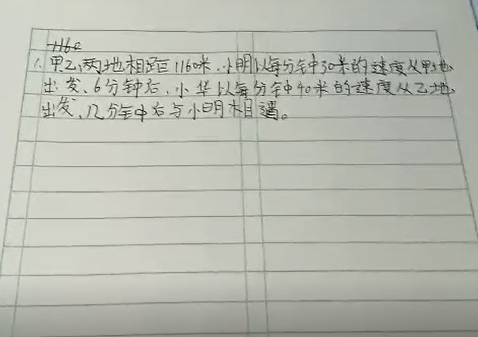 1160
1.甲乙两地相距1160米.小明以每分钟30米的速度从甲地
出发,6分钟后,小华以每分钟40米的速度从乙地
出发,几分钟后与小明相遇。